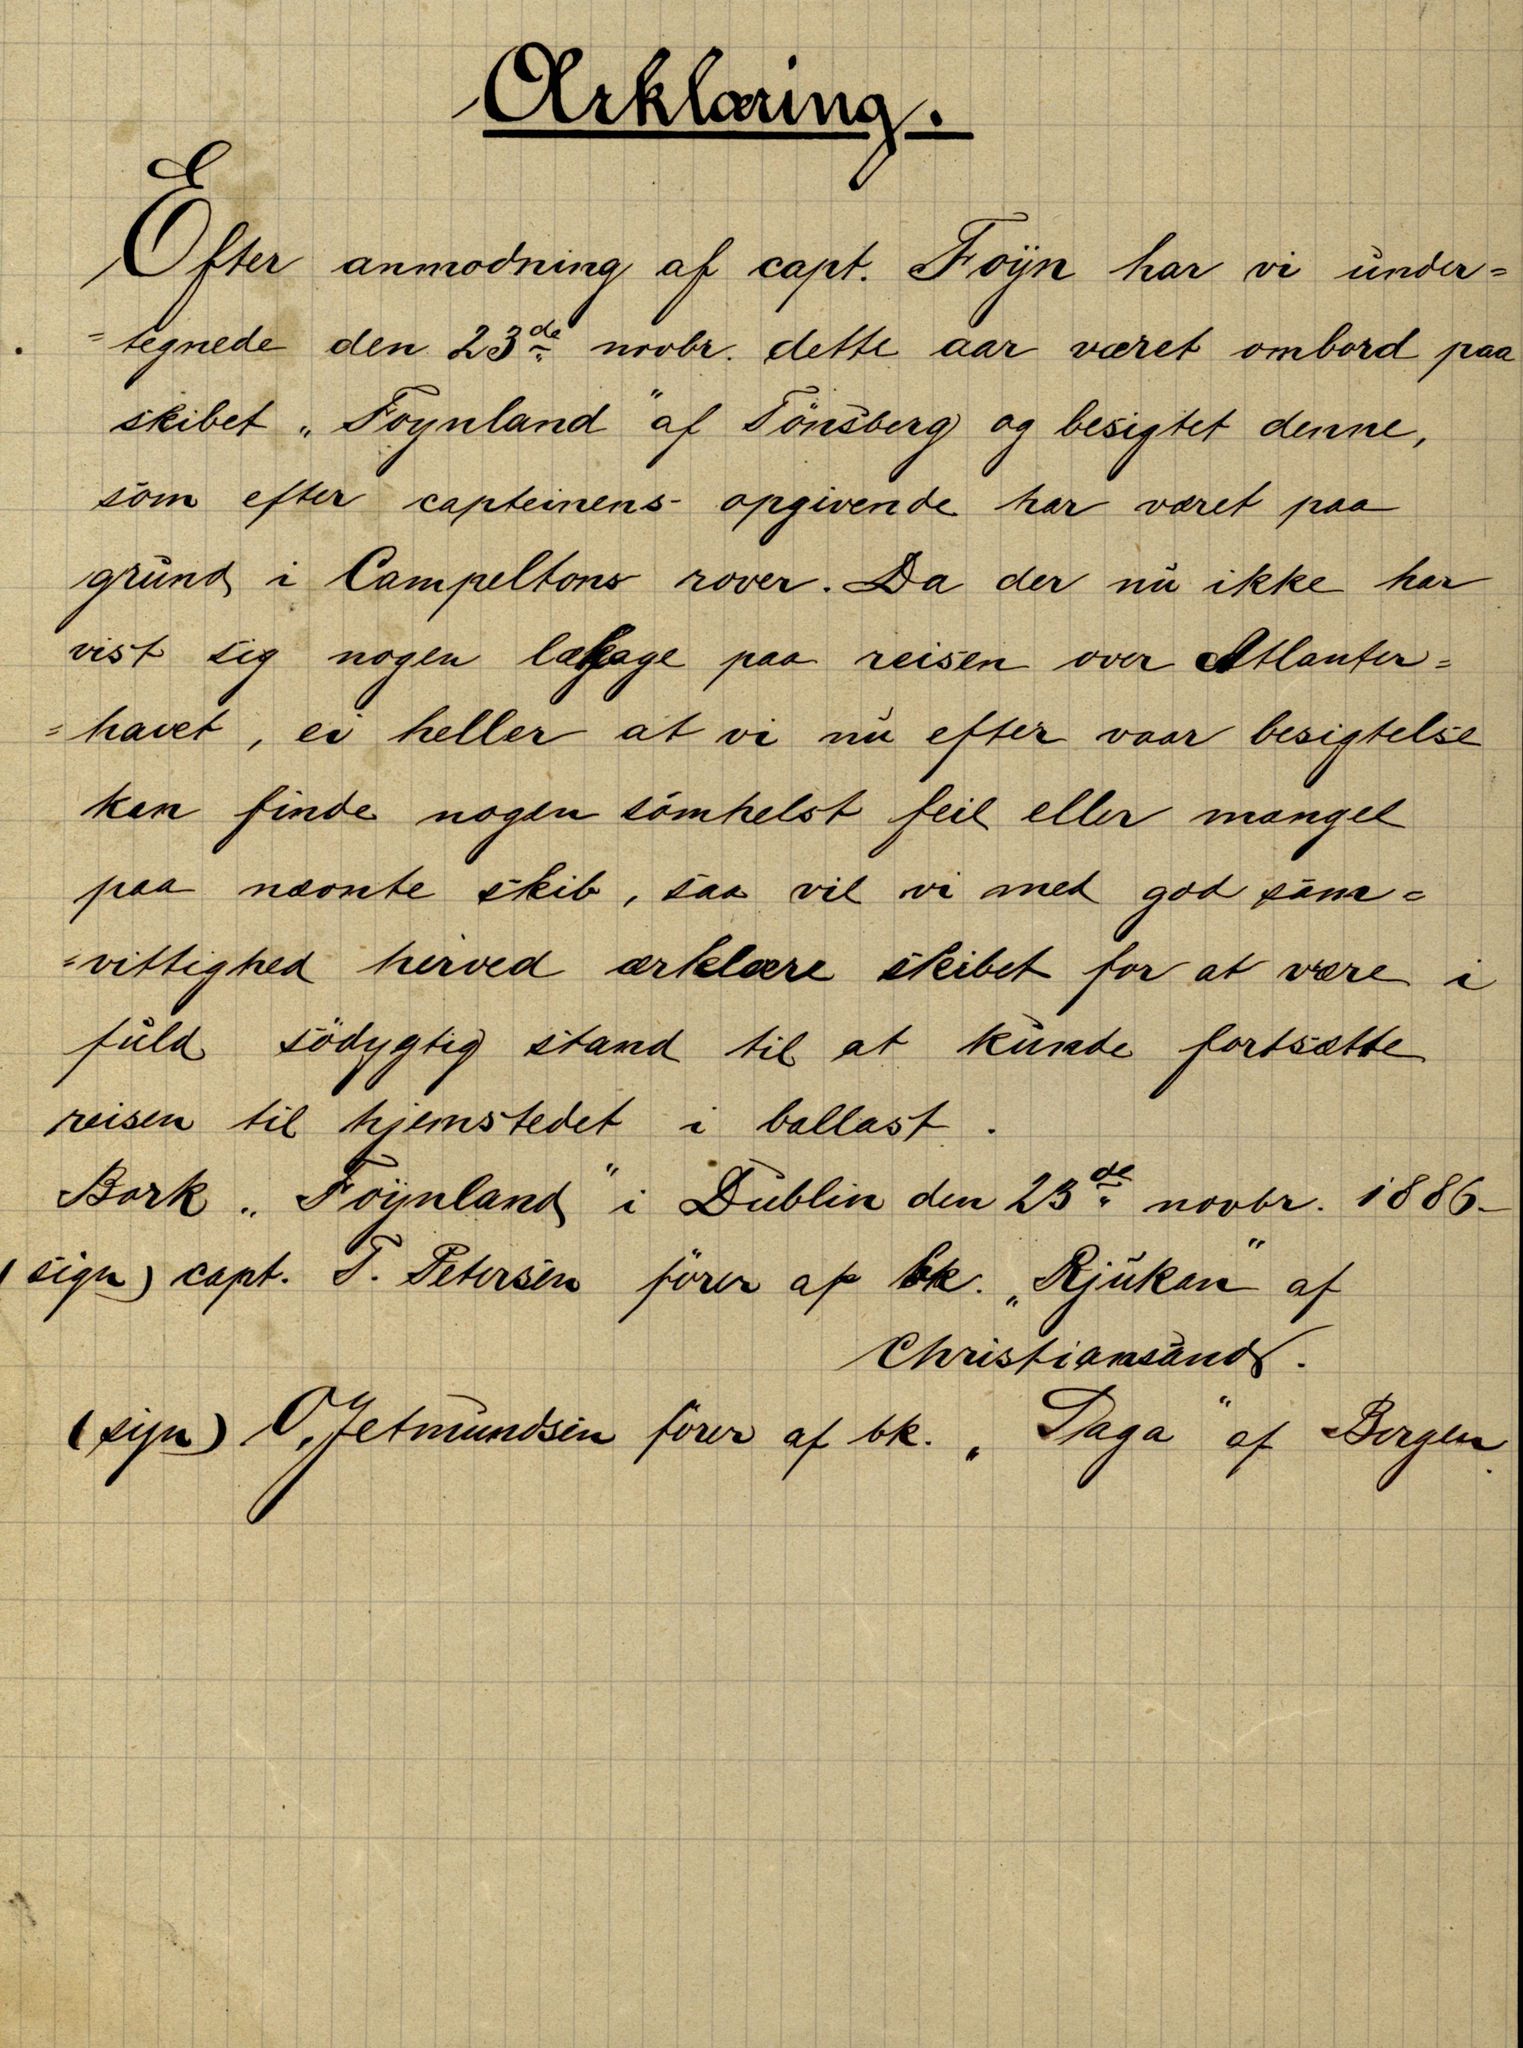 Ærklæring.
Efter anmodning af capt. Föÿn har vi under=
=tegnede den 23de novbr. dette aar været ombord paa
skibet „Foynland" af Tönsberg og besigtet denne,
som efter capteinens opgivende har været paa
grund i Campeltons rover. Da der nu ikke har
vist sig nogen lækage paa reisen over Atlanter=
=havet, ei heller at vi nu efter vaar besigtelse
kan finde nogen somhelst feil eller mangel
paa nævnte skib, saa vil vi med god sam=
=vittighed herved ærklære skibet for at være i
fuld södygtig stand til at kunde fortsætte
reisen til hjemstedet i ballast.
Bark „Föÿnland" i Dublin den 23de novbr. 1886-
(sign) capt. T. Petersen förer af bk. „Rjukan" af
Christiansand.
(sign) O. Jetmundsen förer af bk. „Saga" af Bergen.